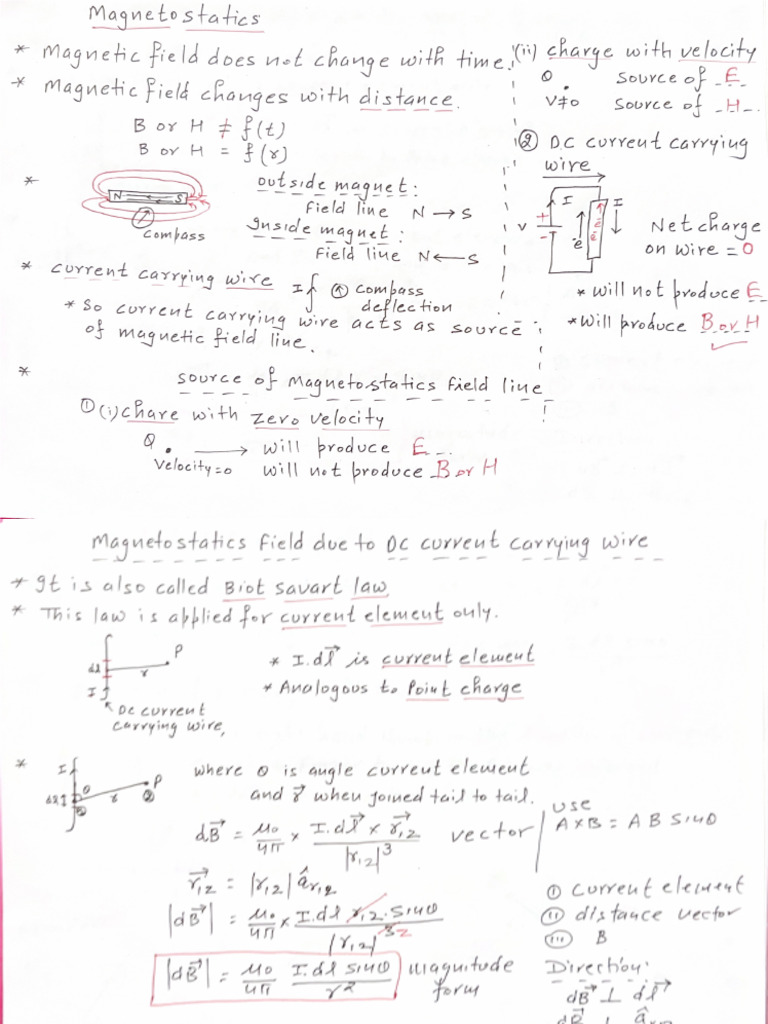 Magnetostatics
* Magnetic field does not change with time.
* Magnetic field changes with distance.
B or H ≠ f(t)
B or H = f(r)
* N S
compass
outside magnet:
Field line N → S
Inside magnet:
Field line N ← S
* current carrying wire I compass
deflection
* So current carrying wire acts as source
of magnetic field line.
* source of magnetostatics field line
① (i) chare with zero velocity
Q . → will produce E
Velocity=0 will not produce B or H
(ii) charge with velocity
Q . source of E
V≠0 source of H
② DC current carrying
wire
V + - I ē ē ē I
Net charge
on wire = 0
* will not produce E
* will produce B or H
Magnetostatics Field due to DC current carrying wire
* It is also called Biot Savart law
* This law is applied for current element only.
dl I r P
DC current
carrying wire,
* I.dl⃗ is current element
* Analogous to Point charge
* I dl ① θ r P ②
where θ is angle current element
and r⃗ when joined tail to tail.
dB⃗ = μ₀/4π × I.dl⃗ × r⃗₁₂ / |r₁₂|³ vector
use
A×B = A B sinθ
r⃗₁₂ = |r₁₂| â r₁₂
|dB⃗| = μ₀/4π × I.dl r₁₂.sinθ / |r₁₂|³ 2
|dB⃗| = μ₀/4π I.dl sinθ / r² magnitude
form
① current element
(ii) distance vector
(iii) B
Direction:
dB⃗ ⊥ dl⃗
dB⃗ ⊥ â r₁₂